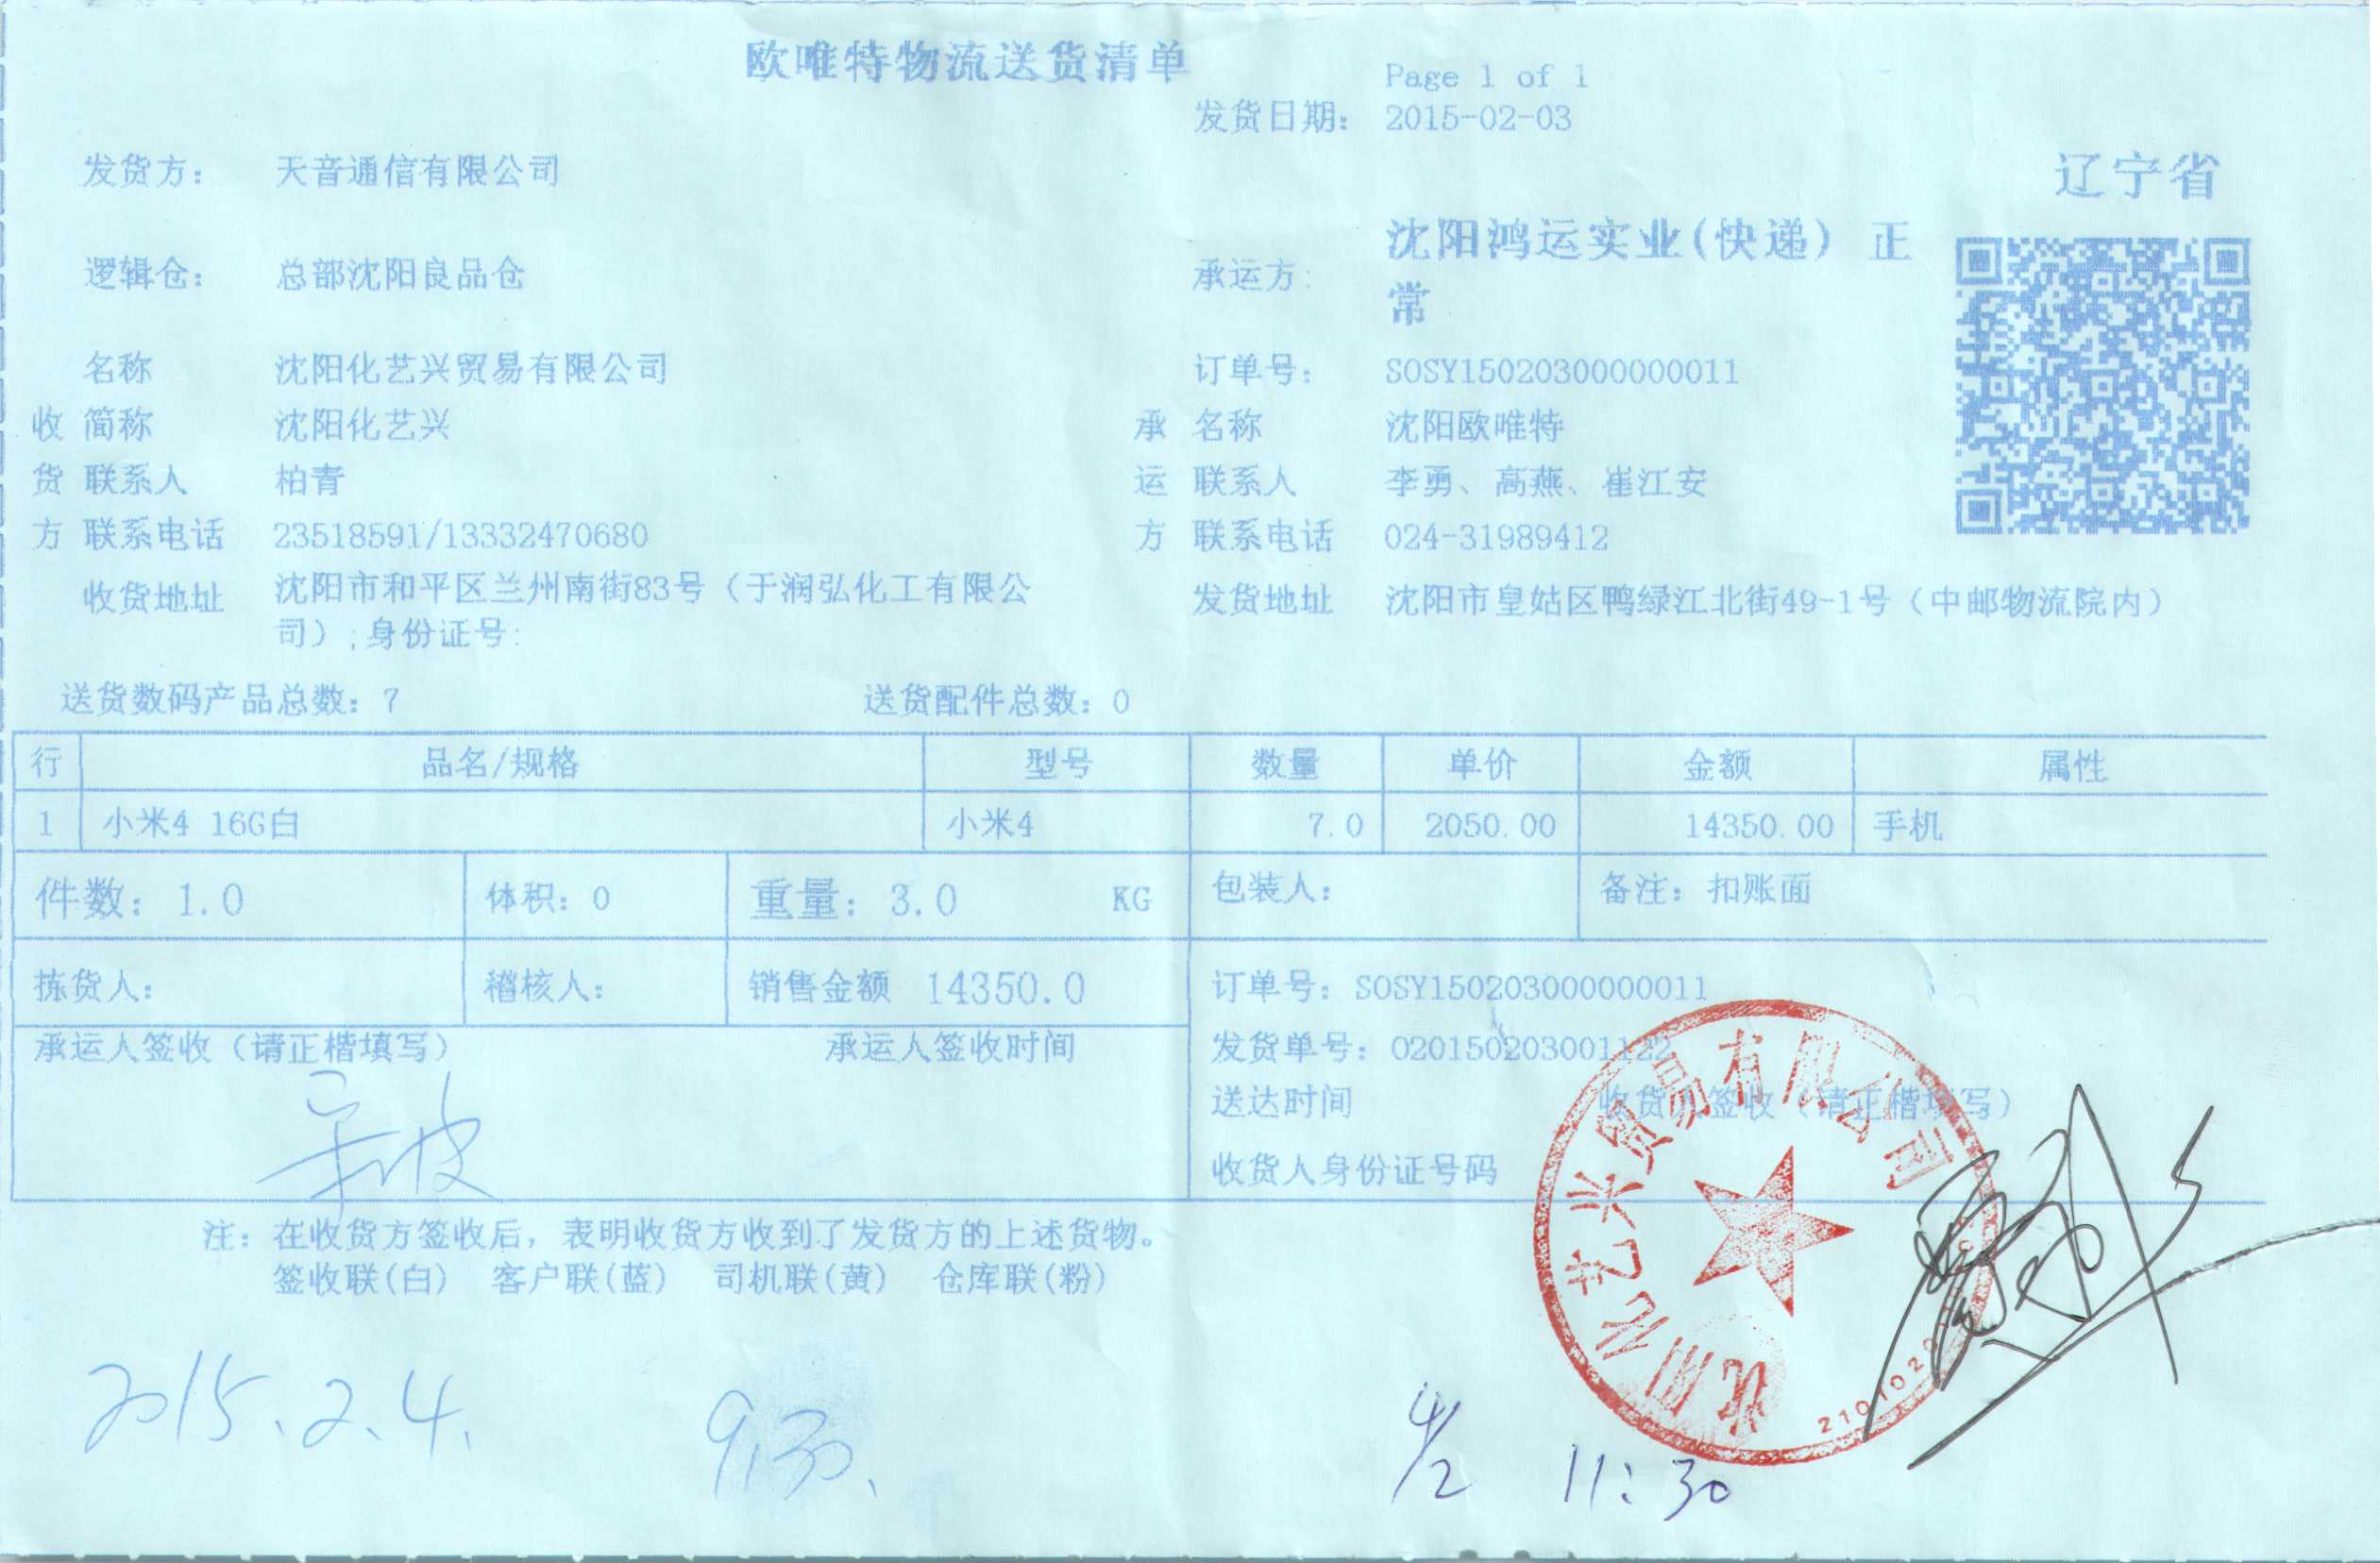 欧唯特物流送货清单
Page 1 of 1
发货日期： 2015-02-03
发货方： 天音通信有限公司
辽宁省
逻辑仓： 总部沈阳良品仓
承运方: 沈阳鸿运实业(快递) 正
常
名称 沈阳化艺兴贸易有限公司
订单号： SOSY150203000000011
收 简称 沈阳化艺兴
承 名称 沈阳欧唯特
货 联系人 柏青
运 联系人 李勇、高燕、崔江安
方 联系电话 23518591/13332470680
方 联系电话 024-31989412
收货地址 沈阳市和平区兰州南街83号（于润弘化工有限公
司）;身份证号:
发货地址 沈阳市皇姑区鸭绿江北街49-1号（中邮物流院内）
送货数码产品总数：7 送货配件总数：0
行 品名/规格 型号 数量 单价 金额 属性
1 小米4 16G白 小米4 7.0 2050.00 14350.00 手机
件数：1.0 体积：0 重量：3.0 KG 包装人： 备注：扣账面
拣货人： 稽核人： 销售金额 14350.0 订单号：SOSY150203000000011
承运人签收（请正楷填写） 承运人签收时间
发货单号：020150203001122
送达时间 收货人签收（请正楷填写）
收货人身份证号码
沈阳化艺兴贸易有限公司
注：在收货方签收后，表明收货方收到了发货方的上述货物。
签收联(白) 客户联(蓝) 司机联(黄) 仓库联(粉)
2015.2.4. 9.30.
4/2 11:30